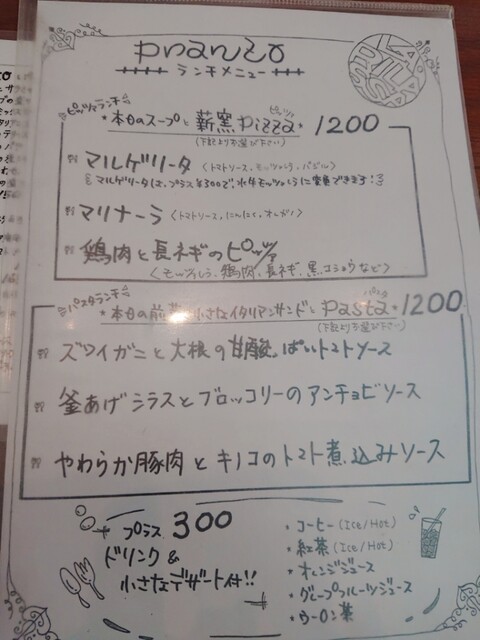 pranzo
ランチメニュー
ピッツァランチ
★本日のスープと薪窯pizza★1200
ピッツァ
(下記よりお選び下さい)
マルゲリータ(トマトソース、モッツァレラ、バジル)
マルゲリータは、プラス¥300で水牛モッツァレラに変更できます!
マリナーラ(トマトソース、にんにく、オレガノ)
鶏肉と長ネギのピッツァ
(モッツァレラ、鶏肉、長ネギ、黒コショウなど)
パスタランチ
★本日の前菜と小さなイタリアンサンドとpasta★1200
パスタ
(下記よりお選び下さい)
ズワイガニと大根の甘酸っぱいトマトソース
釜あげシラスとブロッコリーのアンチョビソース
やわらか豚肉とキノコのトマト煮込みソース
プラス300
ドリンク&
小さなデザート付!!
・コーヒー(Ice/Hot)
・紅茶(Ice/Hot)
・オレンジジュース
・グレープフルーツジュース
・ウーロン茶